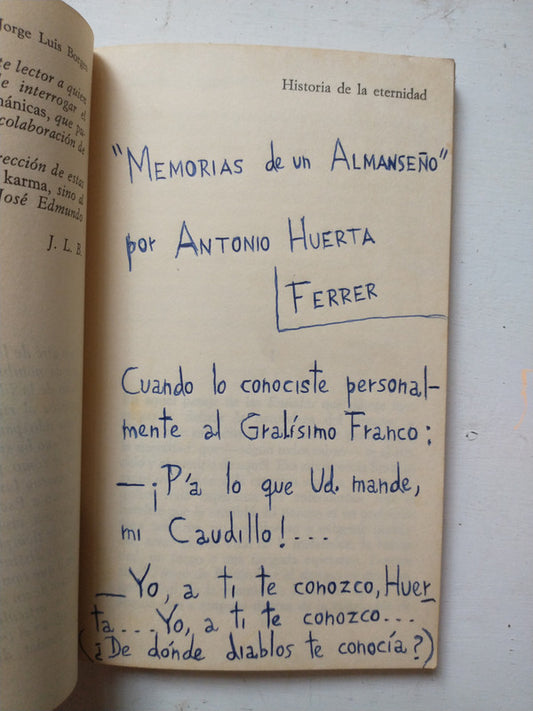 Jorge Luis Borges
te lector a quien
de interrogar el
mánicas, que pu-
colaboración de
rección de estas
karma, sino al
José Edmundo
J. L. B.
Historia de la eternidad
"MEMORIAS de un ALMANSEÑO"
por ANTONIO HUERTA
FERRER
Cuando lo conociste personal-
mente al Gralísimo Franco:
—¡P'a lo que Ud. mande,
mi Caudillo!...
—Yo, a ti te conozco, Huer-
ta... Yo, a ti te conozco...
(¿De dónde diablos te conocía?)